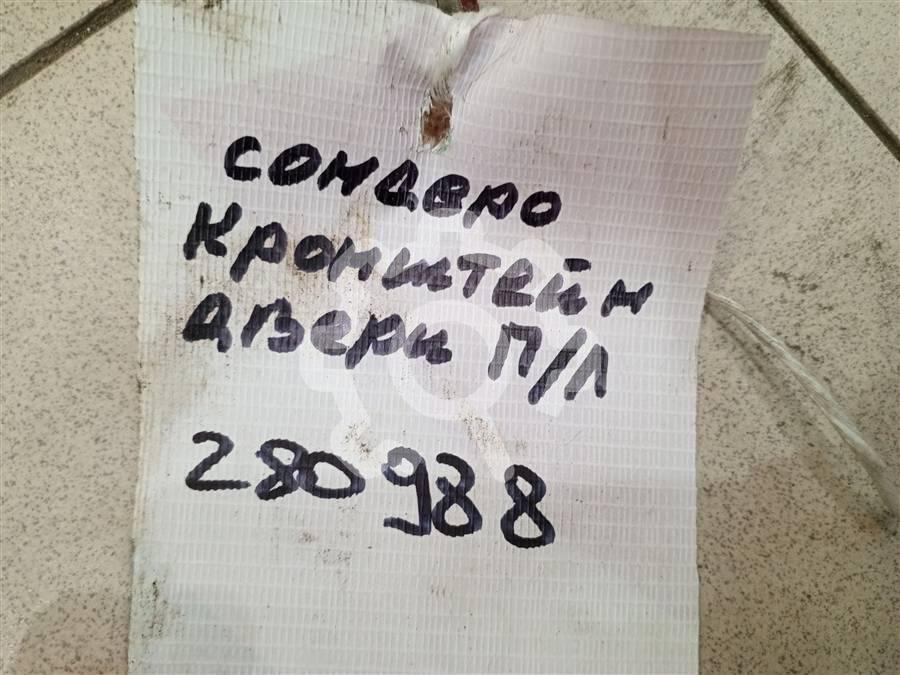 сондеро
кронштейн
двери П/Л
280988